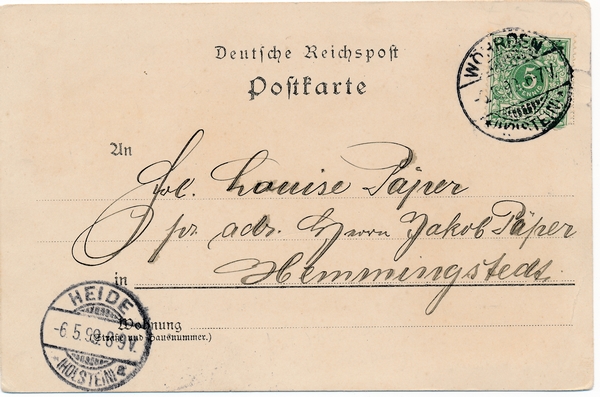 Deutsche Reichspost
Postkarte
WÖHRDEN
5
(HOLSTEIN)
An
Louise Päper
pr adr. Herrn Jakob Päper
in Hemmingstedt.
HEIDE
-6.5.99.8-9V.
(HOLSTEIN)*a
Wohnung
(Straße und Hausnummer.)